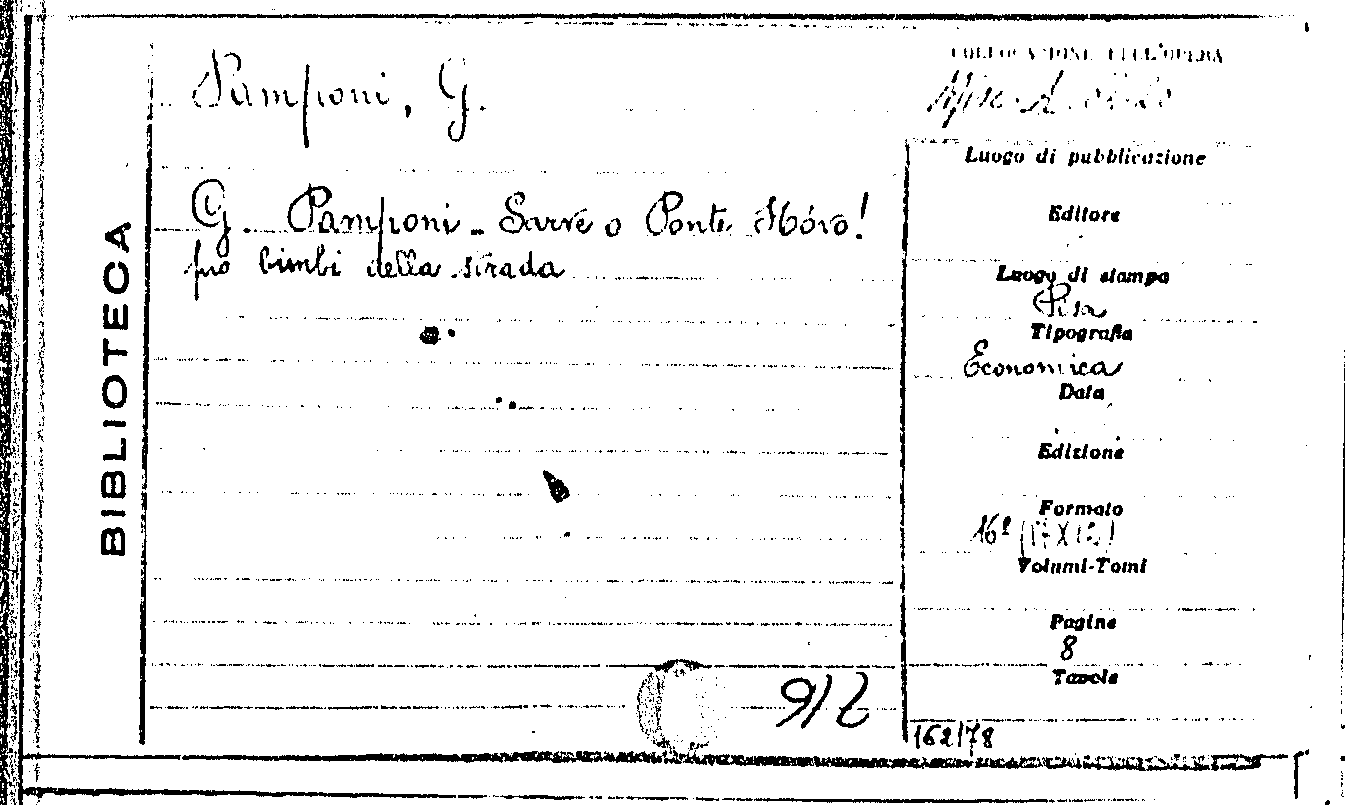 BIBLIOTECA
Pamponi, G.
G. Pamponi - Surve o Ponte Nóvo!
pro bimbi della strada
COLLOCAZIONE DELL'OPERA
Luogo di pubblicazione
Editore
Luogo di stampa
Pisa
Tipografia
Economica
Data
Edizione
Formato
16º (17X12)
Volumi-Tomi
Pagine
8
Tavole
162178